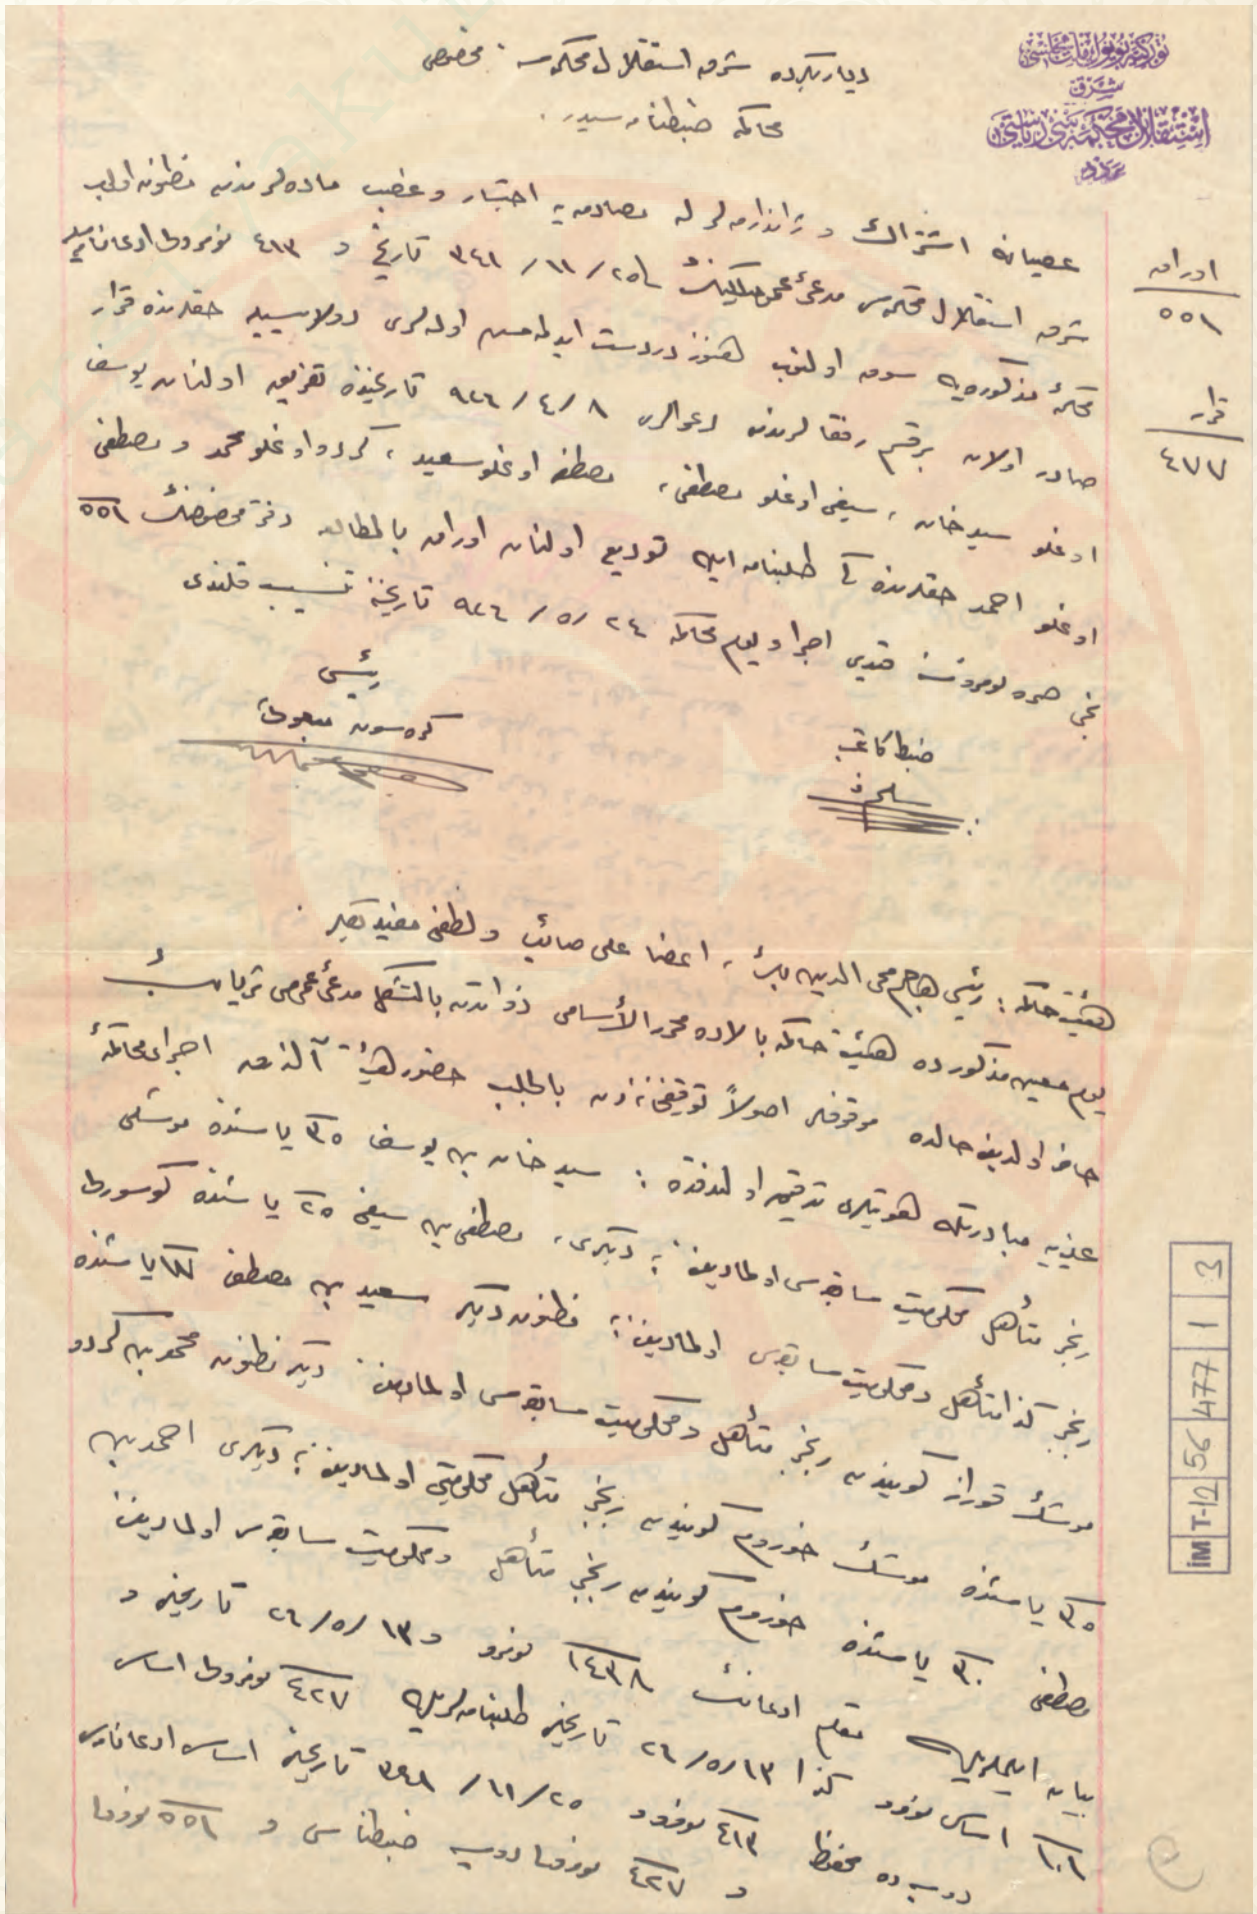 توركيه بويوك ملت مجلسى
شرق
استقلال محكمه سى رياستى
عدد
دیاربكرده شرق استقلال محكمه سنه مخصوص
محاكمه ضبطنامه سیدر.
اوراق
٥٥١
قرار
٤٧٧
عصیانه اشتراك و ژاندارمه لر له مصادمه یه اجتسار و غصب ماده لرندن مظنون اولوب
شرق استقلال محكمه سى مدعئ عمومیلیكنك ٢٥/١١/٣٤١ تاریخ و ٤١٣ نومرولى ادعانامه سیله
محكمۀ مذكوره یه سوق اولنوب هنوز دردست ایدلمه مش اولملرى دولاییسیله حقلرنده قرار
صادر اولان برقسم رفقالرندن دعوالرى ٨/٤/٩٢٦ تاریخنده تفریق اولنان یوسف
اوغلو سیدخان، سیفى اوغلو مصطفى، مصطفى اوغلو سعید، كردو اوغلو محمد و مصطفى
اوغلو احمد حقلرنده كى طلبنامه ایله تودیع اولنان اوراق بالمطالعه دفتر مخصوصنك ٥٥١
نجى صره نومروسنه قیدى اجرا و یوم محاكمه ٢٤/٥/٩٢٦ تاریخنه تنسیب قلندى
رئیس
ضبط كاتبى
هیئت حاكمه : رئیس هاجم محى الدین بك، اعضا على صائب و لطفى مفید بكلر.
یوم معین مذكورده هیئت حاكمه بالاده محرر الأسامى ذواتدن بالتشكل مدعئ عمومى ثریا بك
حاضر اولدیغى حالده موقوفلر اصولاً توقیفخانه دن بالطلب حضور هیئته آلنه رق اجراى محاكمۀ
علنیه یه مبادرتله هویتلرى تدقیق اولندقده : سیدخان بن یوسف ٣٥ یاشنده موشلى
رنجبر متأهل محكومیت سابقه سى اولمادیغنى؛ دیكرى، مصطفى بن سیفى ٢٥ یاشنده
رنجبر كذا متأهل و محكومیت سابقه سى اولمادیغنى؛ مظنون دیكر سعید بن مصطفى یاشنده
موشك كویندن رنجبر متأهل و محكومیت سابقه سى اولمادیغنى دیكر مظنون محمد بن كردو
٣٥ یاشنده موشك كویندن رنجبر متأهل محكومیتى اولمادیغنى؛ دیكرى احمد بن
مصطفى ٣٠ یاشنده كویندن رنجبر متأهل و محكومیت سابقه سى اولمادیغنى
بیان ایلمه لریله مقام ادعانك ١٤٣٨ نومرو و ١٣/٥/٢٦ تاریخلى و
١٠١ اساس نومرو كذا ١٣/٥/٢٦ تاریخلى طلبنامه لریله ٤٢٧ نومرولى اساس
دوسیه ده محفوظ ٤١٣ نومرو و ٢٥/١١/٣٤١ تاریخلى اساس ادعانامه سى
و ٤٢٧ نومرولى دوسیه ضبطنامه سى و ٥٥١ نومرولى
İM T-12 56 477 1 3